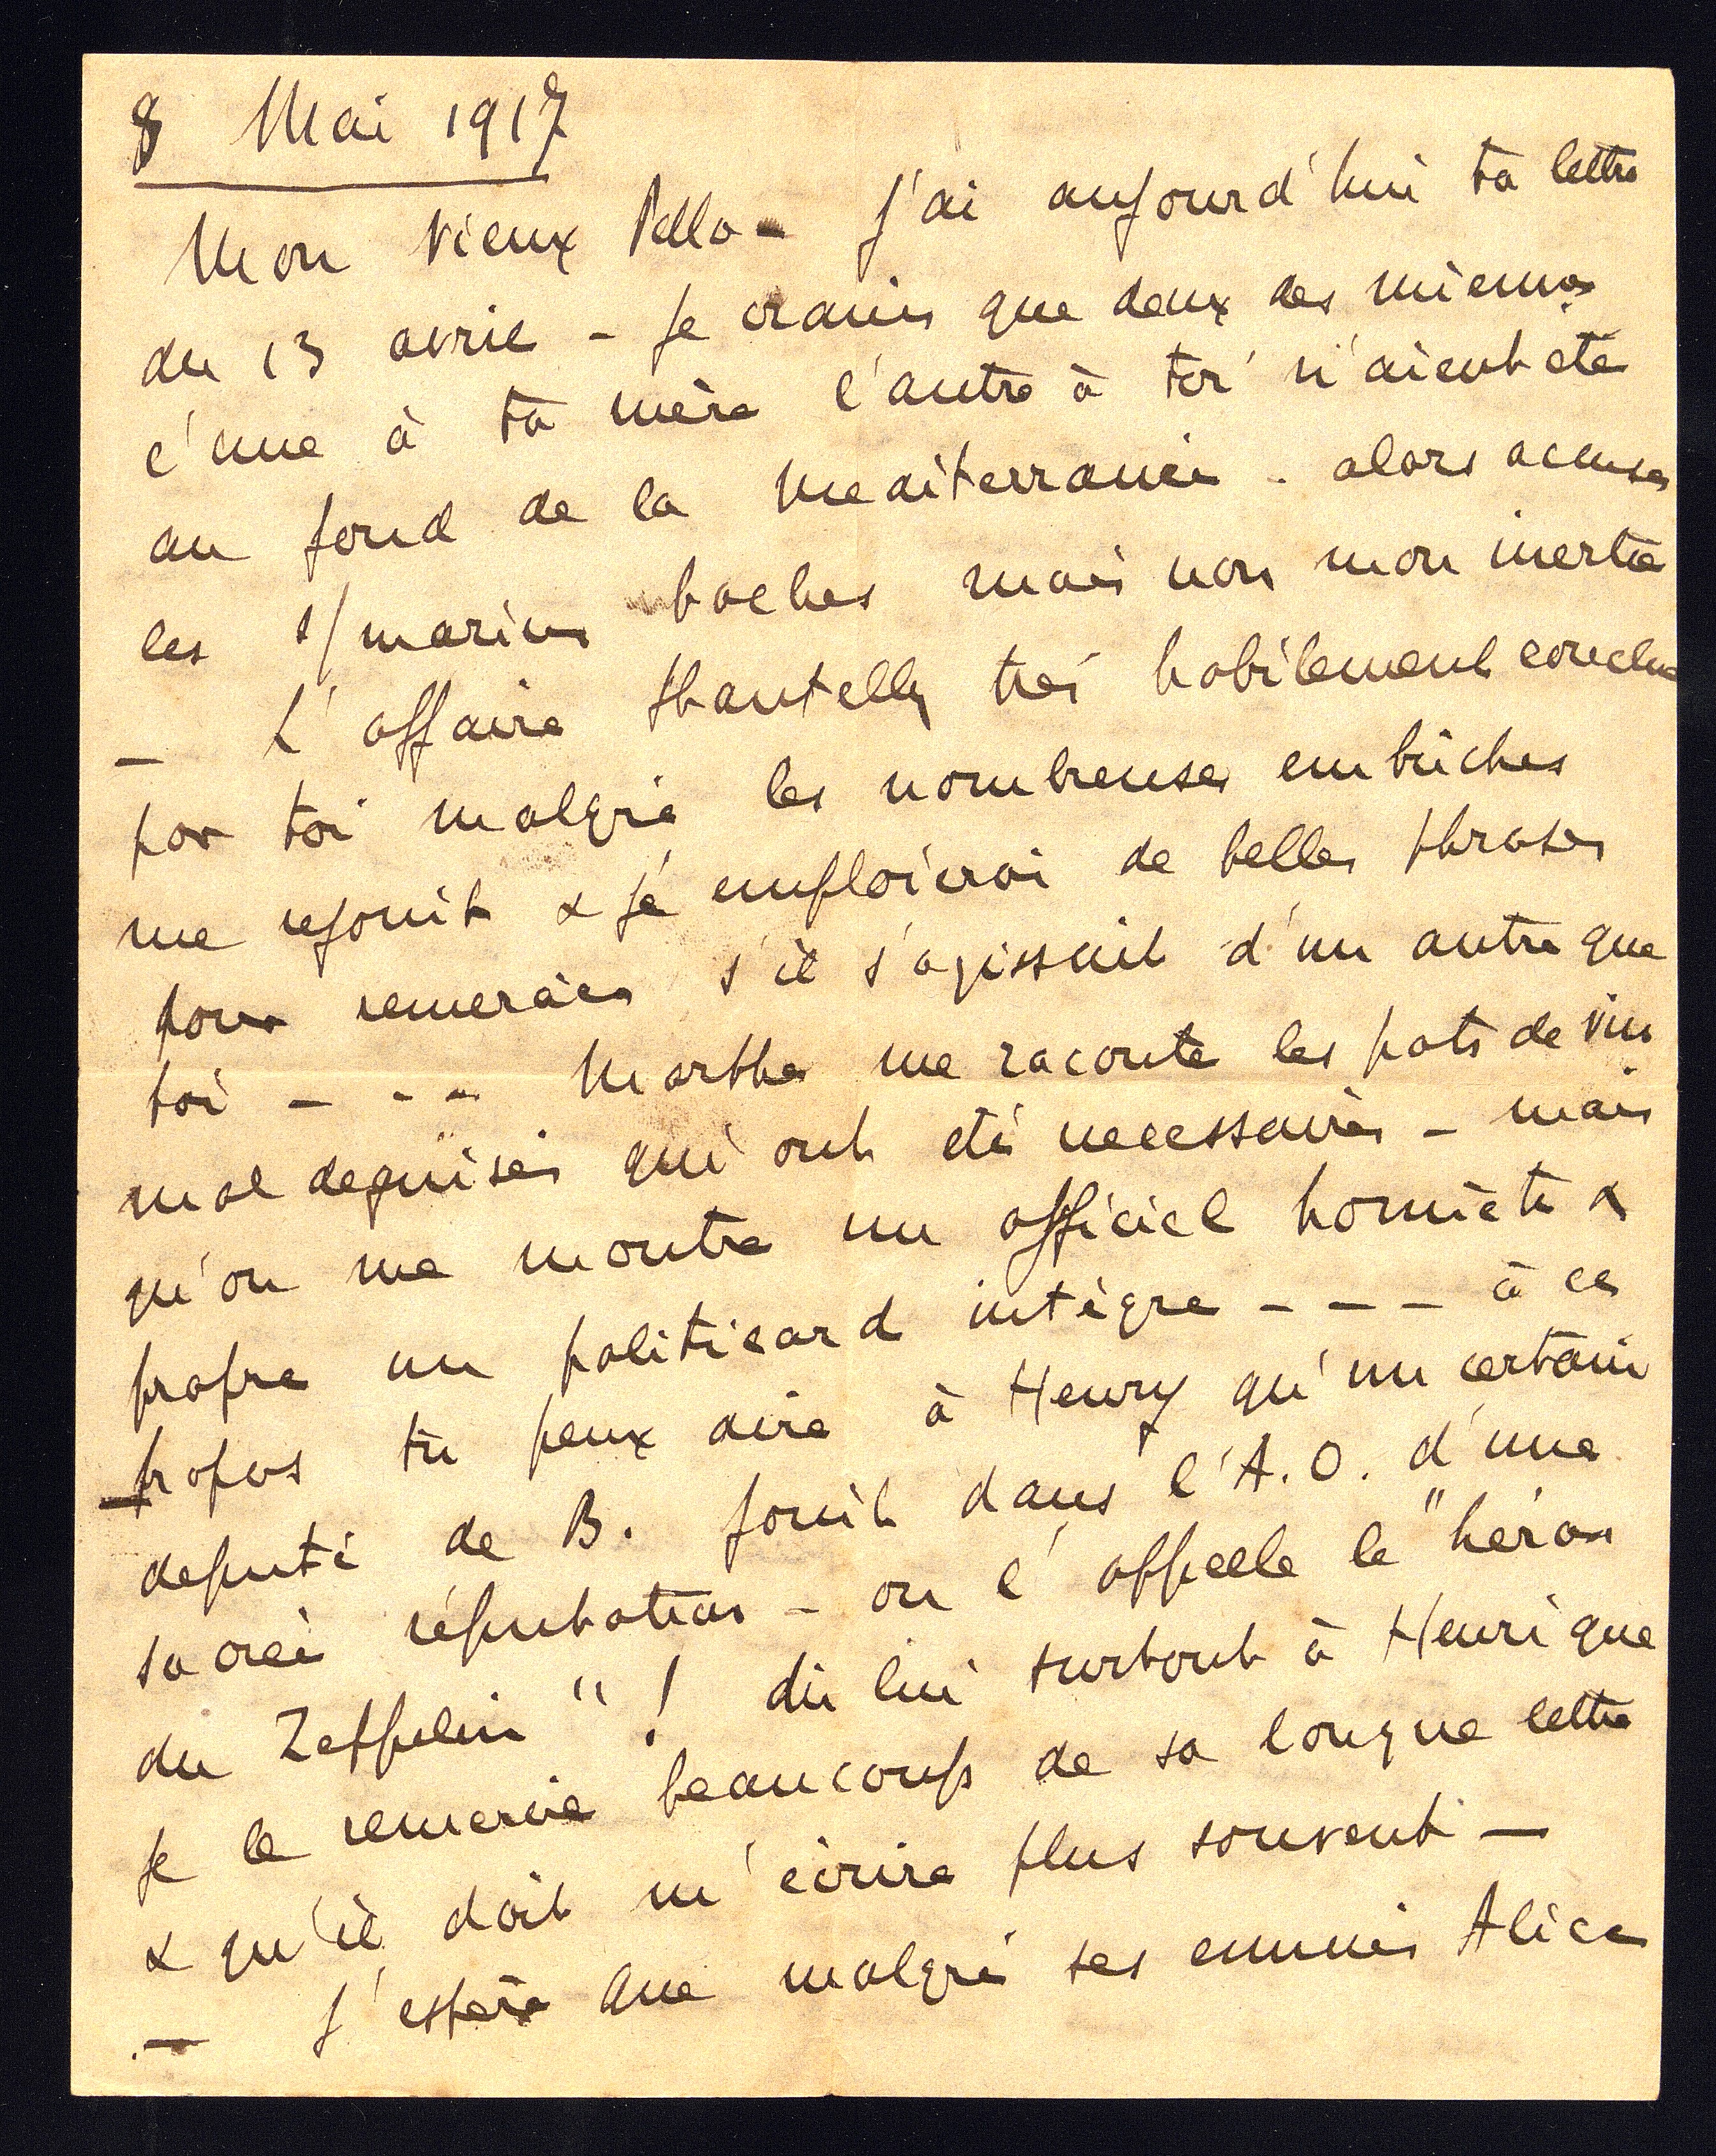 8 Mai 1917
Mon vieux Pello - J'ai aujourd'hui ta lettre
du 13 avril - Je crains que deux des miennes
l'une à ta mère l'autre à toi n'aient été
au fond de la Mediterranée - alors accuses
les s/marins boches mais non mon inertie
- L'affaire très habilement conclue
par toi malgré les nombreuses embûches
me rejouit & j'emploierai de belles phrases
pour remercier s'il s'agissait d'un autre que
toi - - - Marthe me raconte les pots de vin
mal deguisés qui ont été necessaires - mais
qu'on me montre un officiel honnête &
propre un politicard intègre - - - à ce
propos tu peux dire à Henry qu'un certain
deputé de B. jouit dans l'A.O. d'une
sacrée réputation - on l'appelle le "héros
du Zeppelin" ! dis lui surtout à Henri que
je le remercie beaucoup de sa longue lettre
& qu'il doit m'écrire plus souvent -
- J'espère que malgré ses ennuis Alice